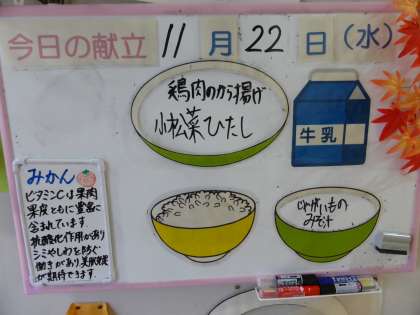 今日の献立 11月22日(水)
鶏肉のから揚げ
小松菜ひたし
牛乳
じゃがいもの
みそ汁
みかん
ビタミンCは果肉
果皮ともに豊富に
含まれています
抗酸化作用があり
シミやしわを防ぐ
働きがあり、美肌効果
が期待できます。